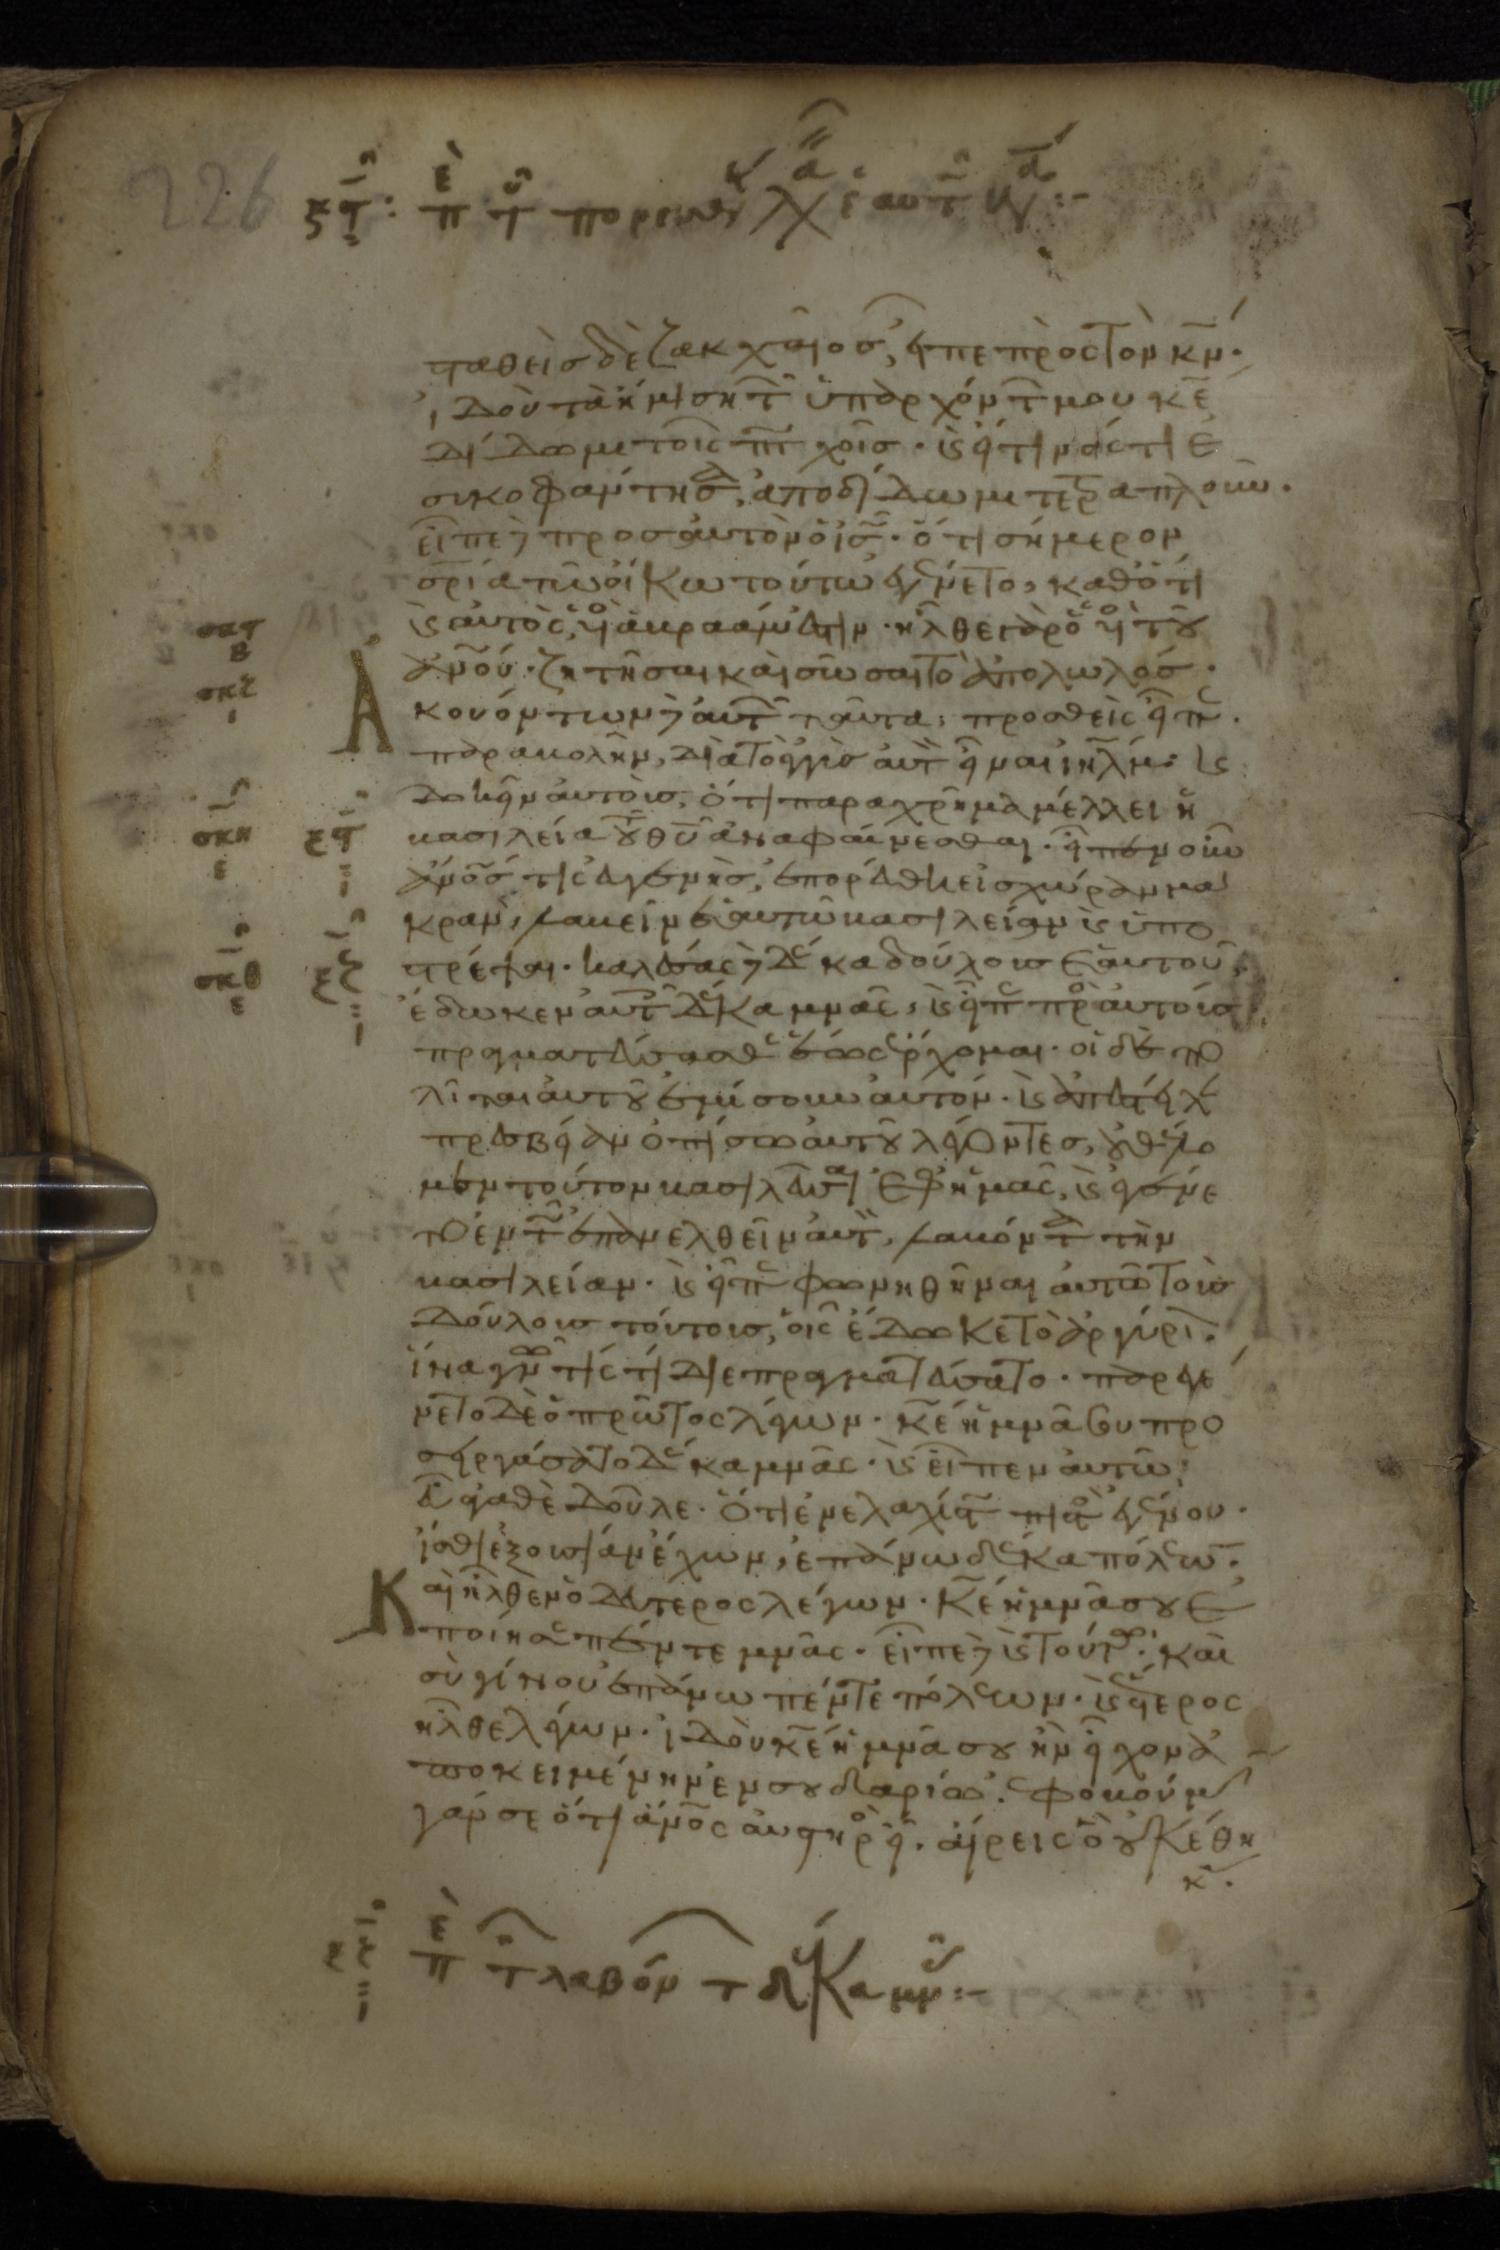 226
ταθεὶς δὲ ζακχαῖος, εἶπε πρὸς τὸν κν.
ἰδοὺ τὰ ἡμίση τῶν ὑπαρχόντ μου κε
δίδωμι τοῖς πτχοῖς. κ εἴ τινός τι ἐ
συκοφάντησα, ἀποδίδωμι τετραπλοῦν.
εἶπε δὲ πρὸς αὐτὸν ὁ ις. ὅτι σήμερον
σρία τῶ οἴκω τούτω ἐγένετο, καθότι
κ αὐτὸς υἱὸς ἀβραάμ ἐστιν. ἦλθε γὰρ ὁ υἱὸς τοῦ
ανου. ζητῆσαι καὶ σῶσαι τὸ ἀπολωλός.
Ἀκουόντων δὲ αὐτῶν ταῦτα, προσθεὶς εἶπε.
παραβολὴν, διὰ τὸ ἐγγὺς αὐτὸν εἶναι ιηλημ. κ
δοκεῖν αὐτοῖς, ὅτι παραχρῆμα μέλλει ἡ
βασιλεία τοῦ θυ ἀναφαίνεσθαι. εἶπεν οὖν
ανος τις εὐγενὴς, ἐπορεύθη εἰς χώραν μα
κρὰν, λαβεῖν ἑαυτῶ βασιλείαν κ ὑπο
στρέψαι. καλέσας δὲ δέκα δούλους ἑαυτοῦ,
ἔδωκεν αὐτοῖς δέκα μνᾶς, κ εἶπε πρὸς αὐτοὺς
πραγματεύσασθε ἕως ἔρχομαι. οἱ δὲ πο
λῖται αὐτοῦ ἐμίσουν αὐτόν. κ ἀπέστειλαν
πρεσβείαν ὀπίσω αὐτοῦ λέγοντες, οὐ θέλο
μεν τοῦτον βασιλεῦσαι ἐφ ἡμᾶς, κ ἐγένε
το ἐν τῶ ἐπανελθεῖν αὐτὸν, λαβόντα τὴν
βασιλείαν. κ εἶπε φωνηθῆναι αὐτῶ τοὺς
δούλους τούτους, οἷς ἔδωκε τὸ ἀργύριον.
ἵνα γνῶ τίς τί διεπραγματεύσατο. παρεγέ
νετο δὲ ὁ πρῶτος λέγων. κε ἡ μνᾶ σου προ
σειργάσατο δέκα μνᾶς. κ εἶπεν αὐτῶ,
εὖ ἀγαθὲ δοῦλε. ὅτι ἐν ἐλαχίστω πιστὸς ἐγένου.
ἴσθι ἐξουσίαν ἔχων, ἐπάνω δέκα πόλεων.
Καὶ ἦλθεν ὁ δεύτερος λέγων. κε ἡ μνᾶ σου ἐ
ποίησε πέντε μνᾶς. εἶπε δὲ κ τούτω. καὶ
σὺ γίνου ἐπάνω πέντε πόλεων. κ ἕτερος
ἦλθε λέγων. ἰδοὺ κε ἡ μνᾶ σου ἣν εἶχον ἀ
ποκειμένην ἐν σουδαρίω. ἐφοβούμην
γάρ σε ὅτι ανος αὐστηρὸς εἶ. αἴρεις ὃ οὐκ ἔθη
κ.